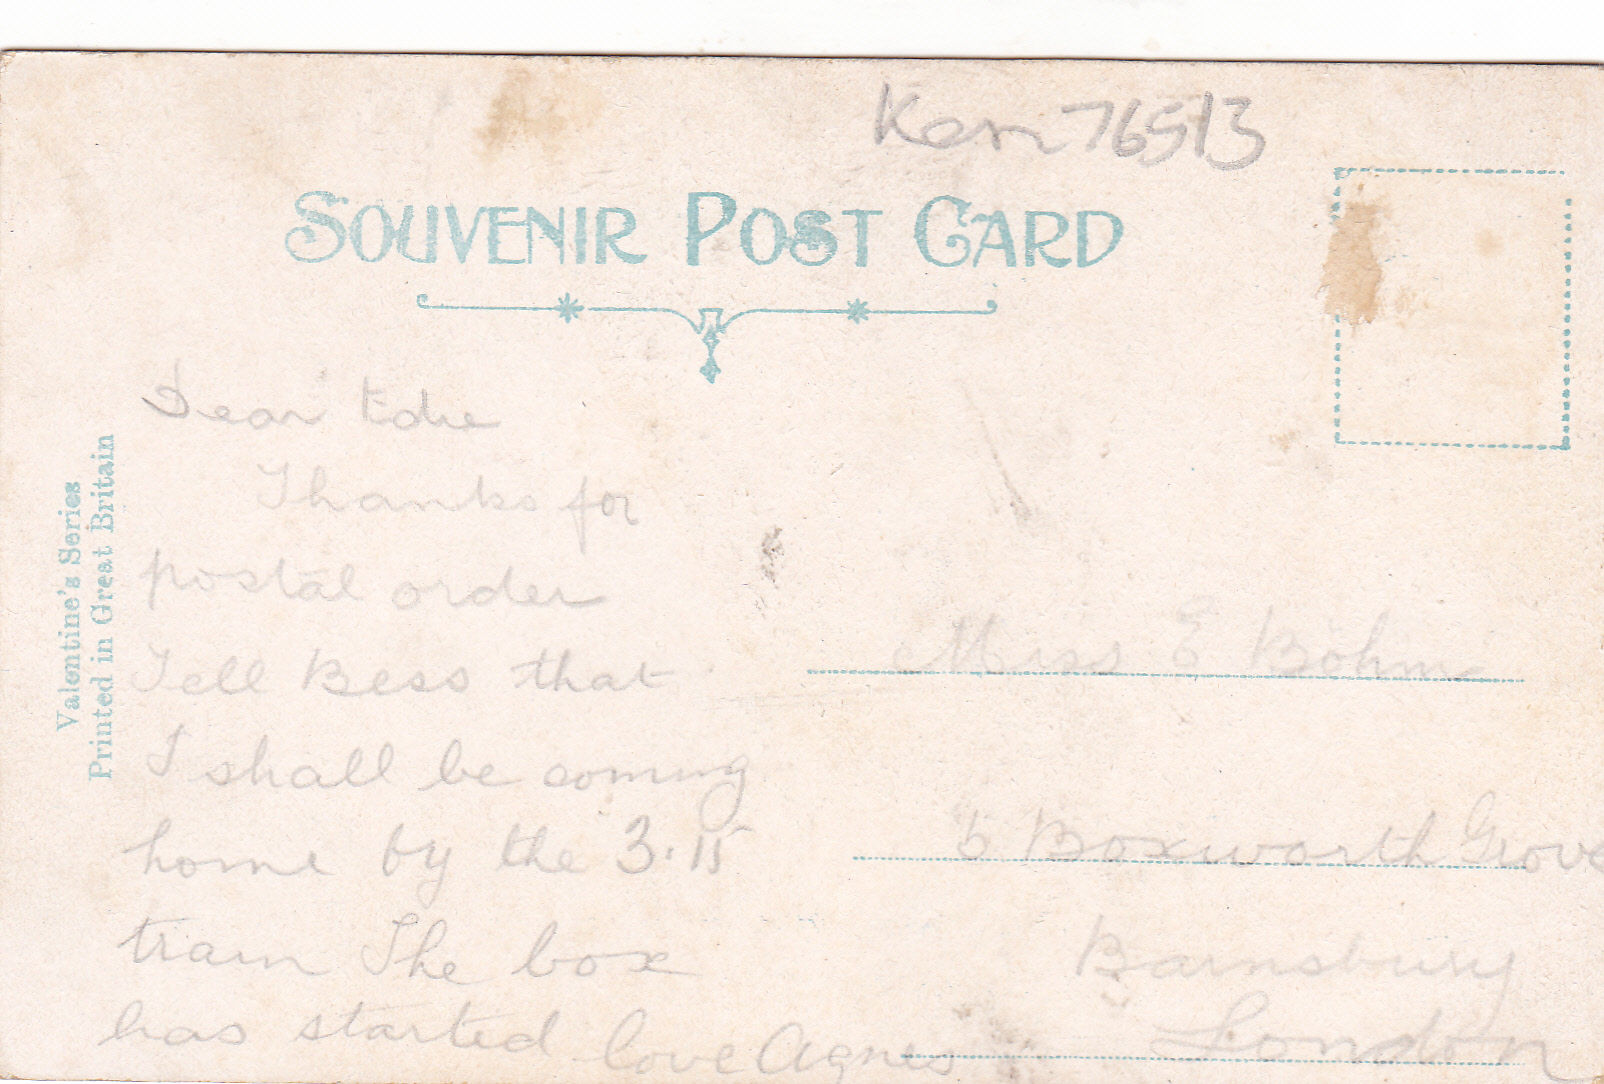 Kem 76513
SOUVENIR POST CARD
Valentine's Series
Printed in Great Britain
Dear Edie
Thanks for
postal order
Tell Bess that
I shall be coming
home by the 3.15
train The box
has started love Agnes
Miss E Böhm
5 Boxworth Grove
Barnsbury
London